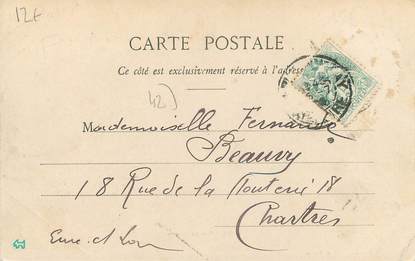 12t
CARTE POSTALE
Ce côté est exclusivement réservé à l'adresse
42)
Mademoiselle Fernande
Beauvy
18 Rue de la 18
Chartres
Eure et Loir